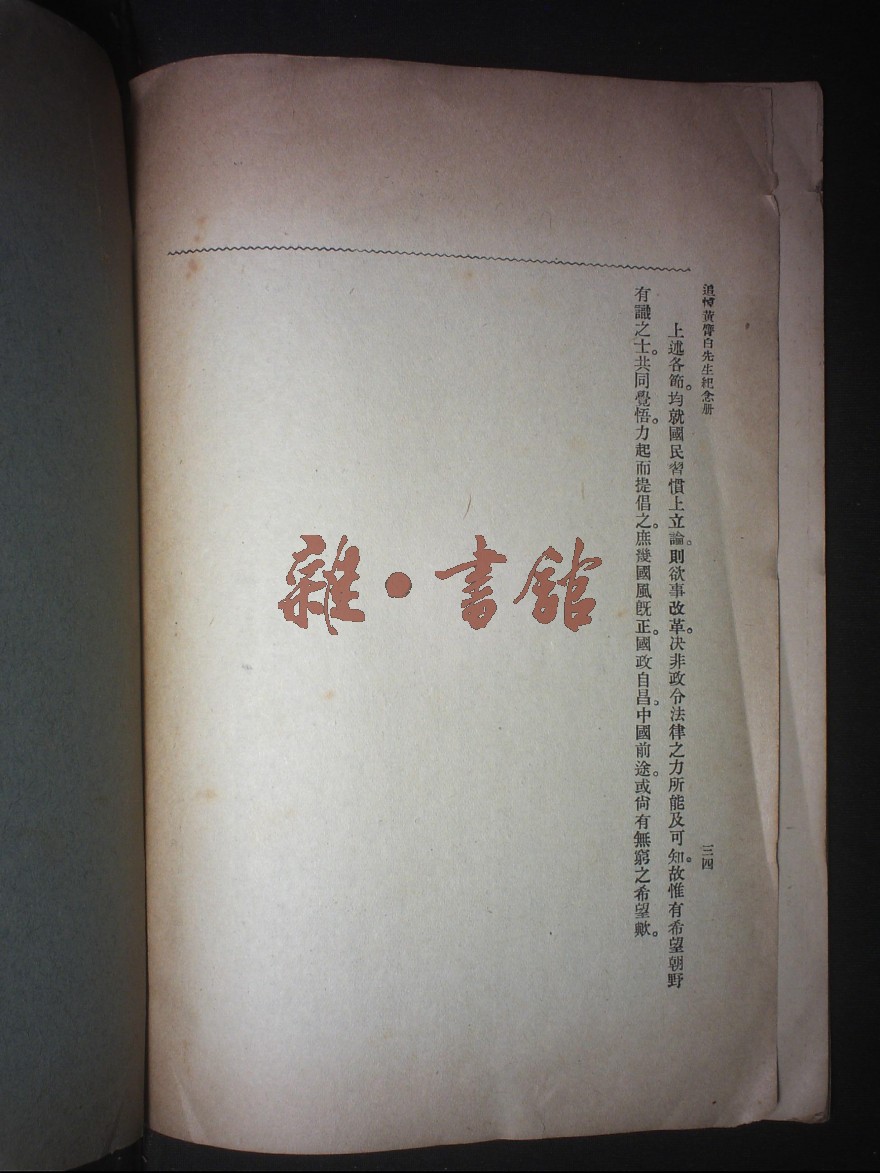 追悼黃膺白先生紀念册
三四
上述各節。均就國民習慣上立論。則欲事改革。決非政令法律之力所能及可知。故惟有希望朝野
有識之士。共同覺悟。力起而提倡之。庶幾國風旣正。國政自昌。中國前途。或尙有無窮之希望歟。
雜·書館